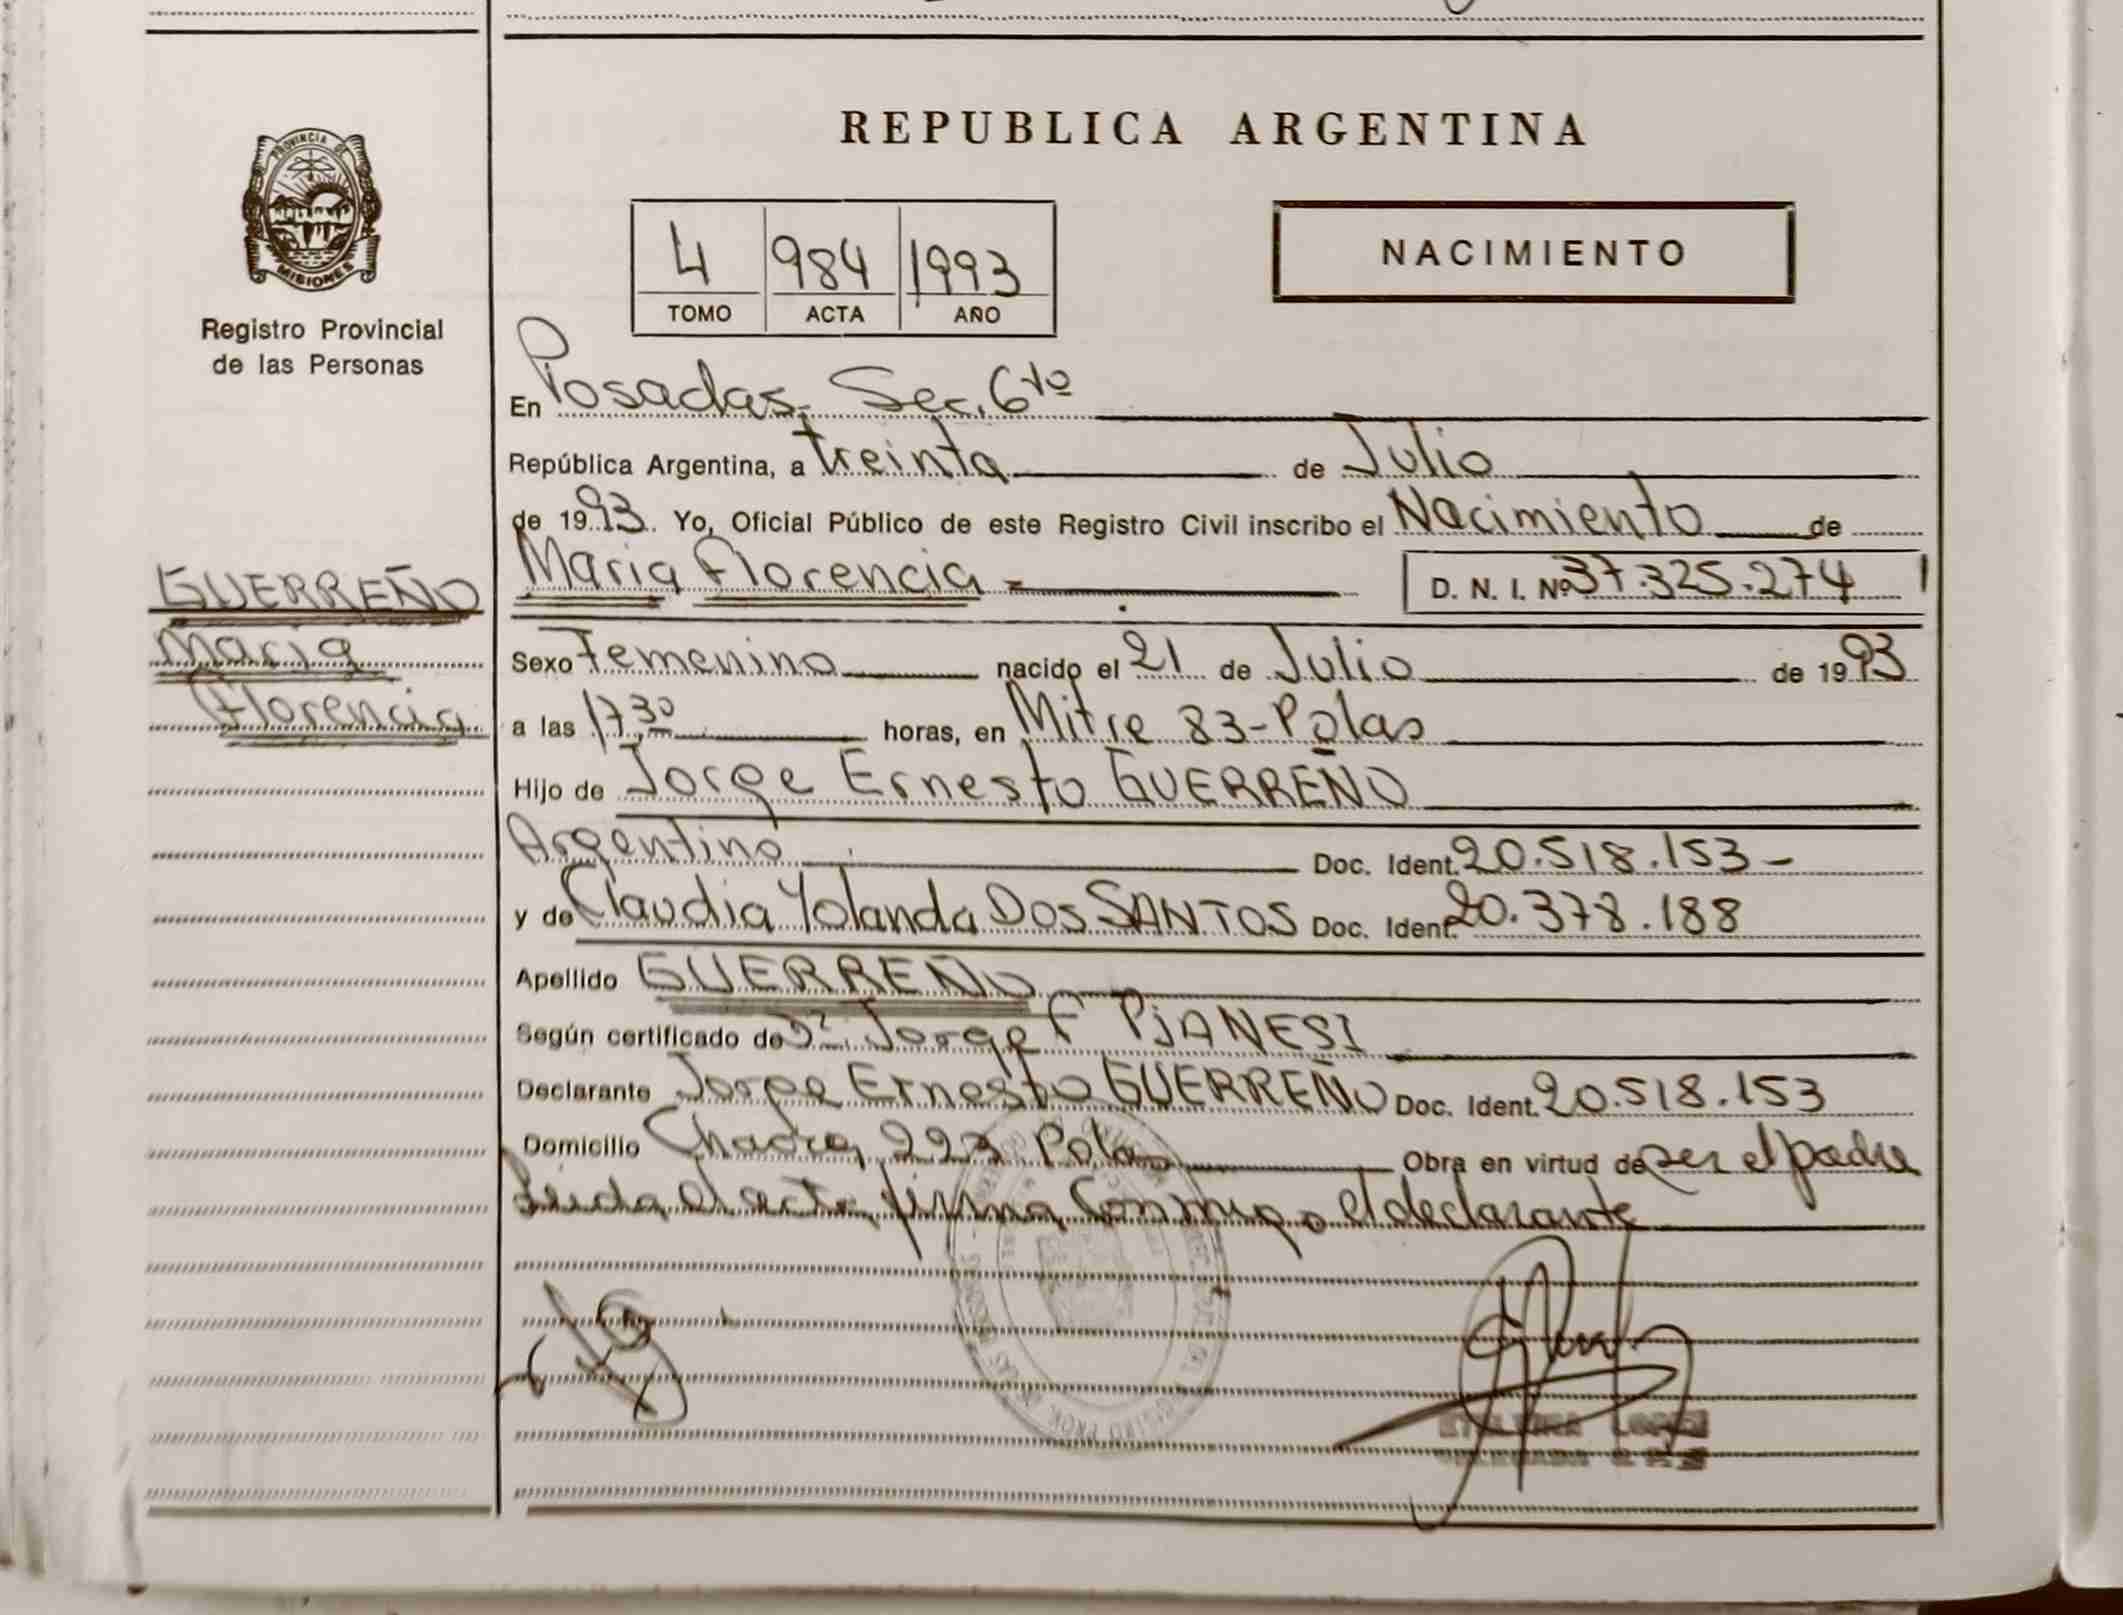 REPUBLICA ARGENTINA
PROVINCIA DE
MISIONES
Registro Provincial
de las Personas
4 984 1993
TOMO ACTA AÑO
NACIMIENTO
En Posadas. Sec. 6ta
República Argentina, a treinta de Julio
de 1993. Yo, Oficial Público de este Registro Civil inscribo el Nacimiento de
GUERREÑO
Maria
Florencia
Maria Florencia
D. N. I. Nº 37.325.274
Sexo Femenino nacido el 21 de Julio de 1993
a las 17,30 horas, en Mitre 83-Pdas
Hijo de Jorge Ernesto GUERREÑO
Argentino Doc. Ident. 20.518.153-
y de Claudia Yolanda DOS SANTOS Doc. Ident. 20.378.188
Apellido GUERREÑO
Según certificado de Dr. Jorge F PJANESI
Declarante Jorge Ernesto GUERREÑO Doc. Ident. 20.518.153
Domicilio 223 Pdas Obra en virtud de ser el padre
Leida el acta, firma conmigo el declarante
LOPEZ